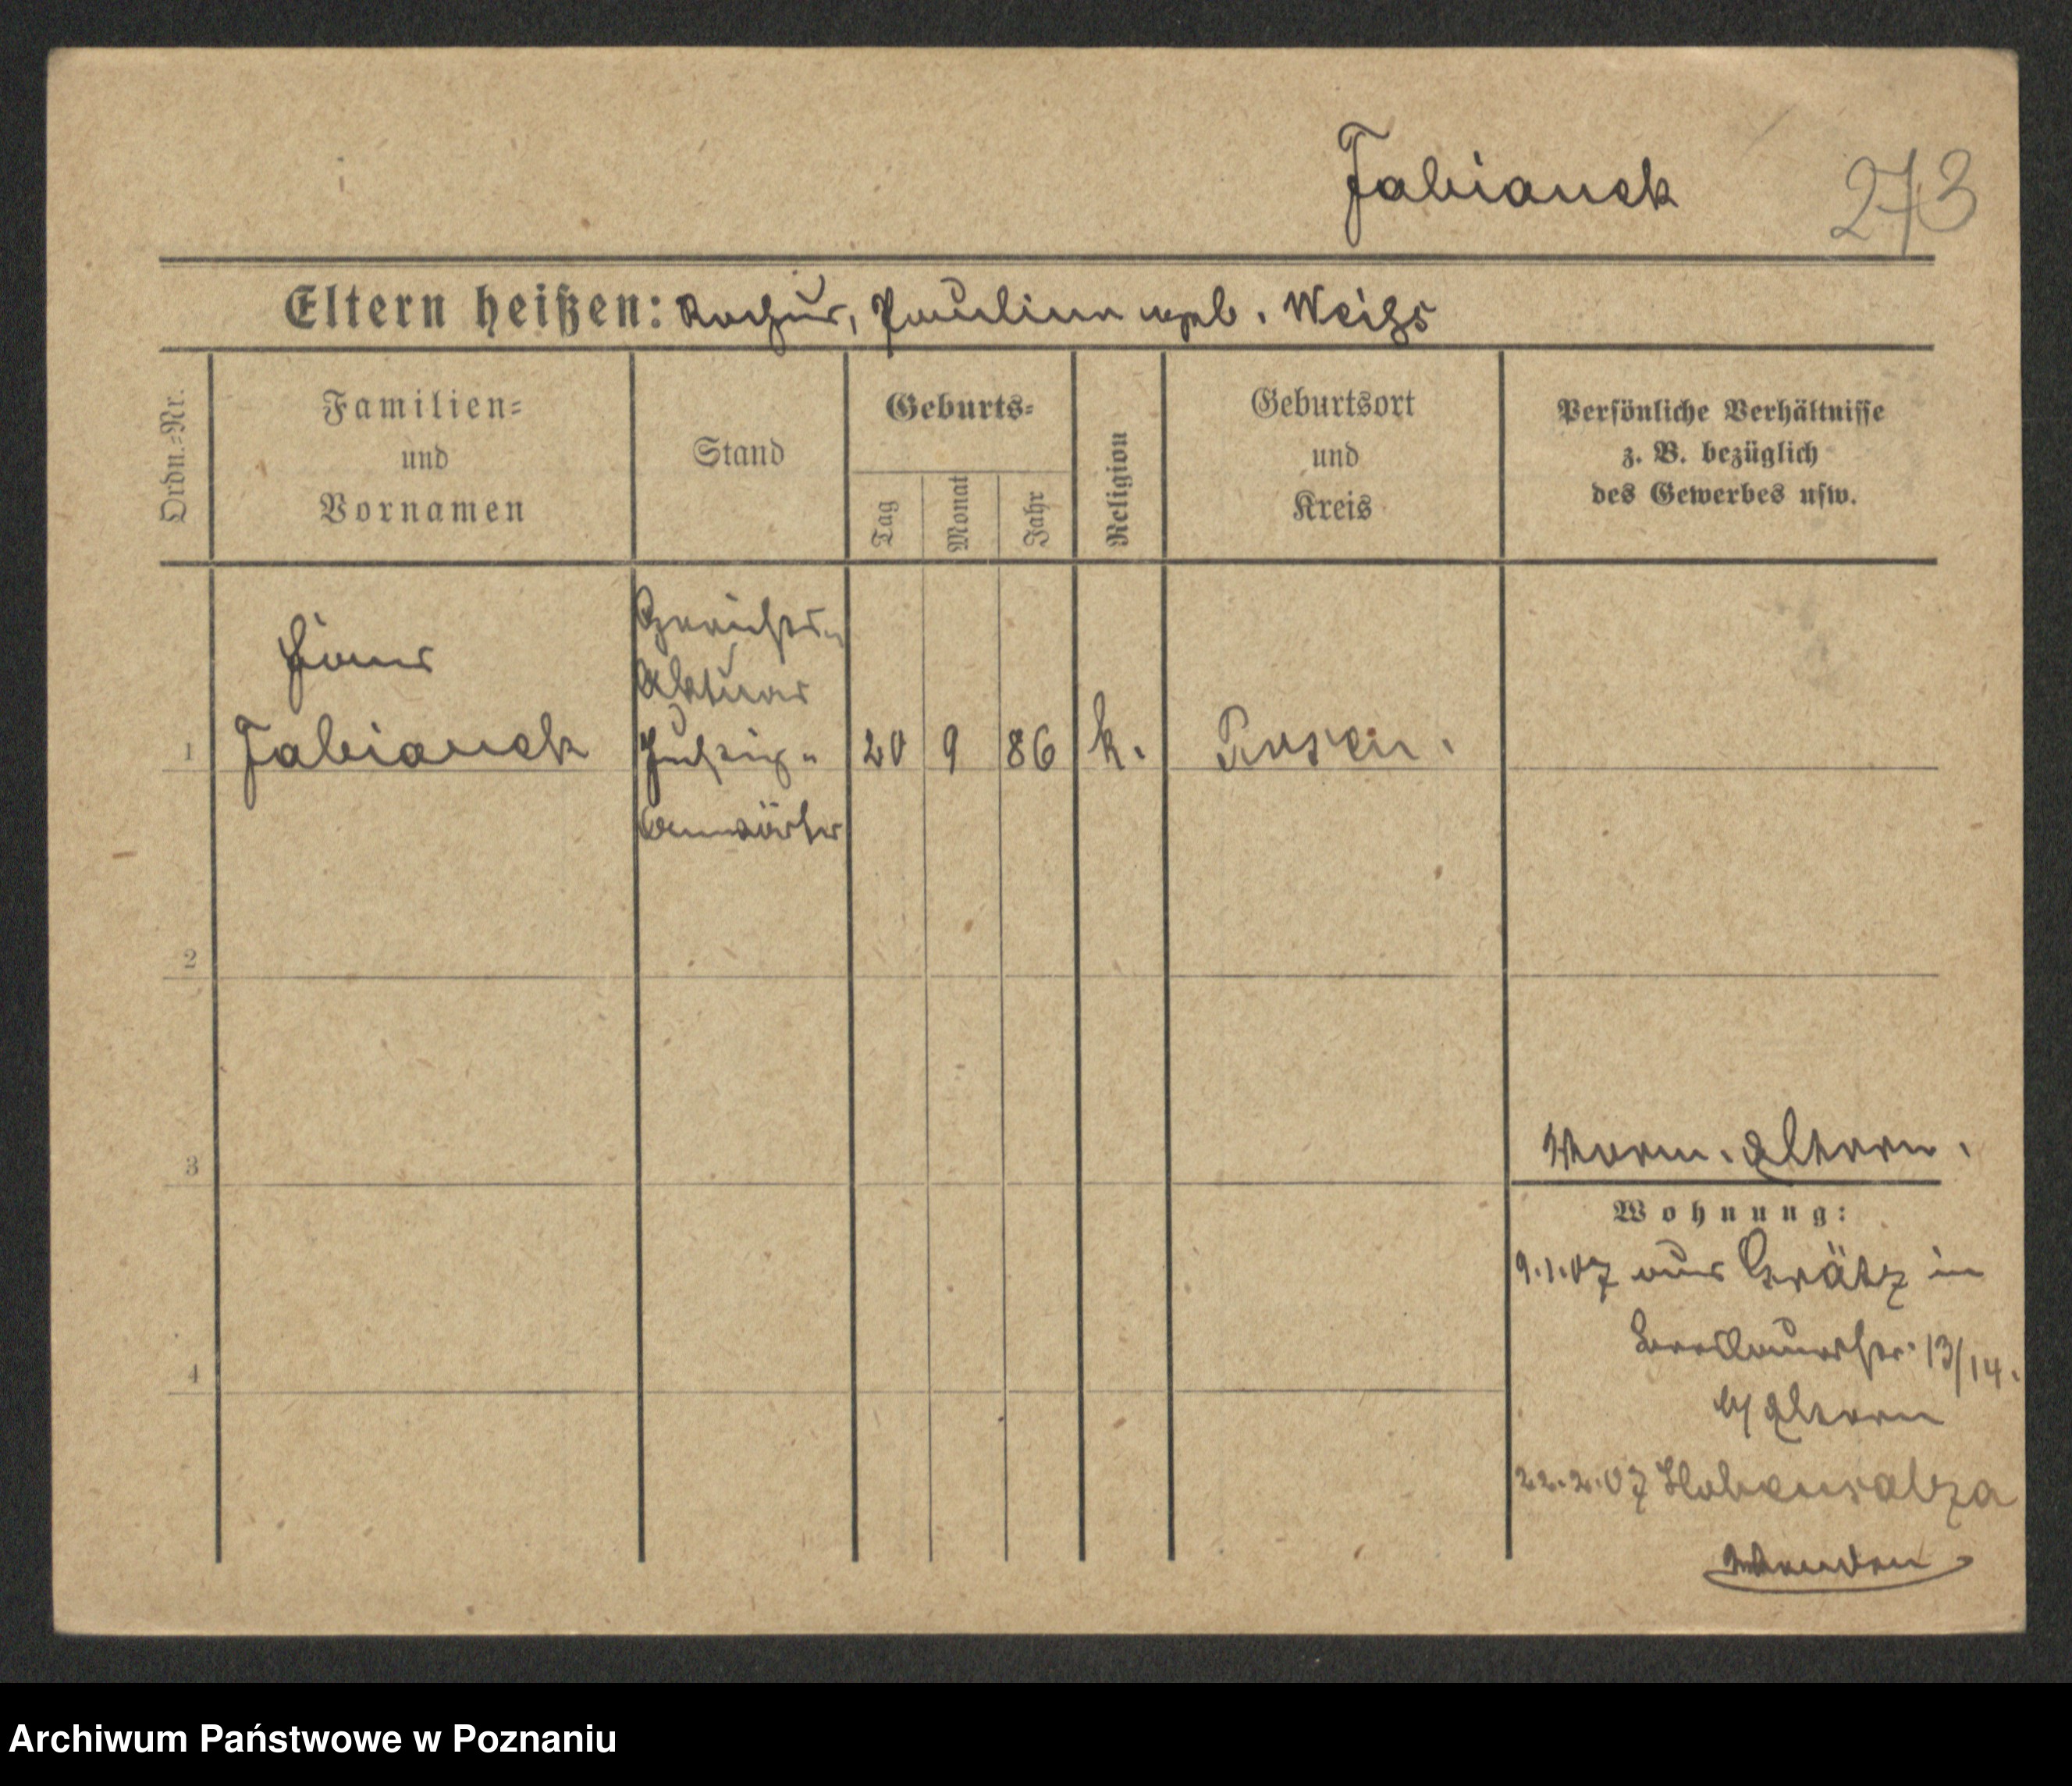 Fabianek
273
Eltern heißen: Rochus, Pauline geb. Weihs
Ordn.=Nr.
Familien=
und
Vornamen
Stand
Geburts=
Tag
Monat
Jahr
Religion
Geburtsort
und
Kreis
Persönliche Verhältnisse
z. B. bezüglich
des Gewerbes usw.
1
Hans
Fabianek
Gerichts=
Aktuar
Justiz=
anwärter
20
9
86
k.
Posen.
2
3
4
Eltern.
Wohnung:
9.1.07 aus Grätz in
13/14.
b/ Eltern
22.2.07 Hohensalza
Archiwum Państwowe w Poznaniu